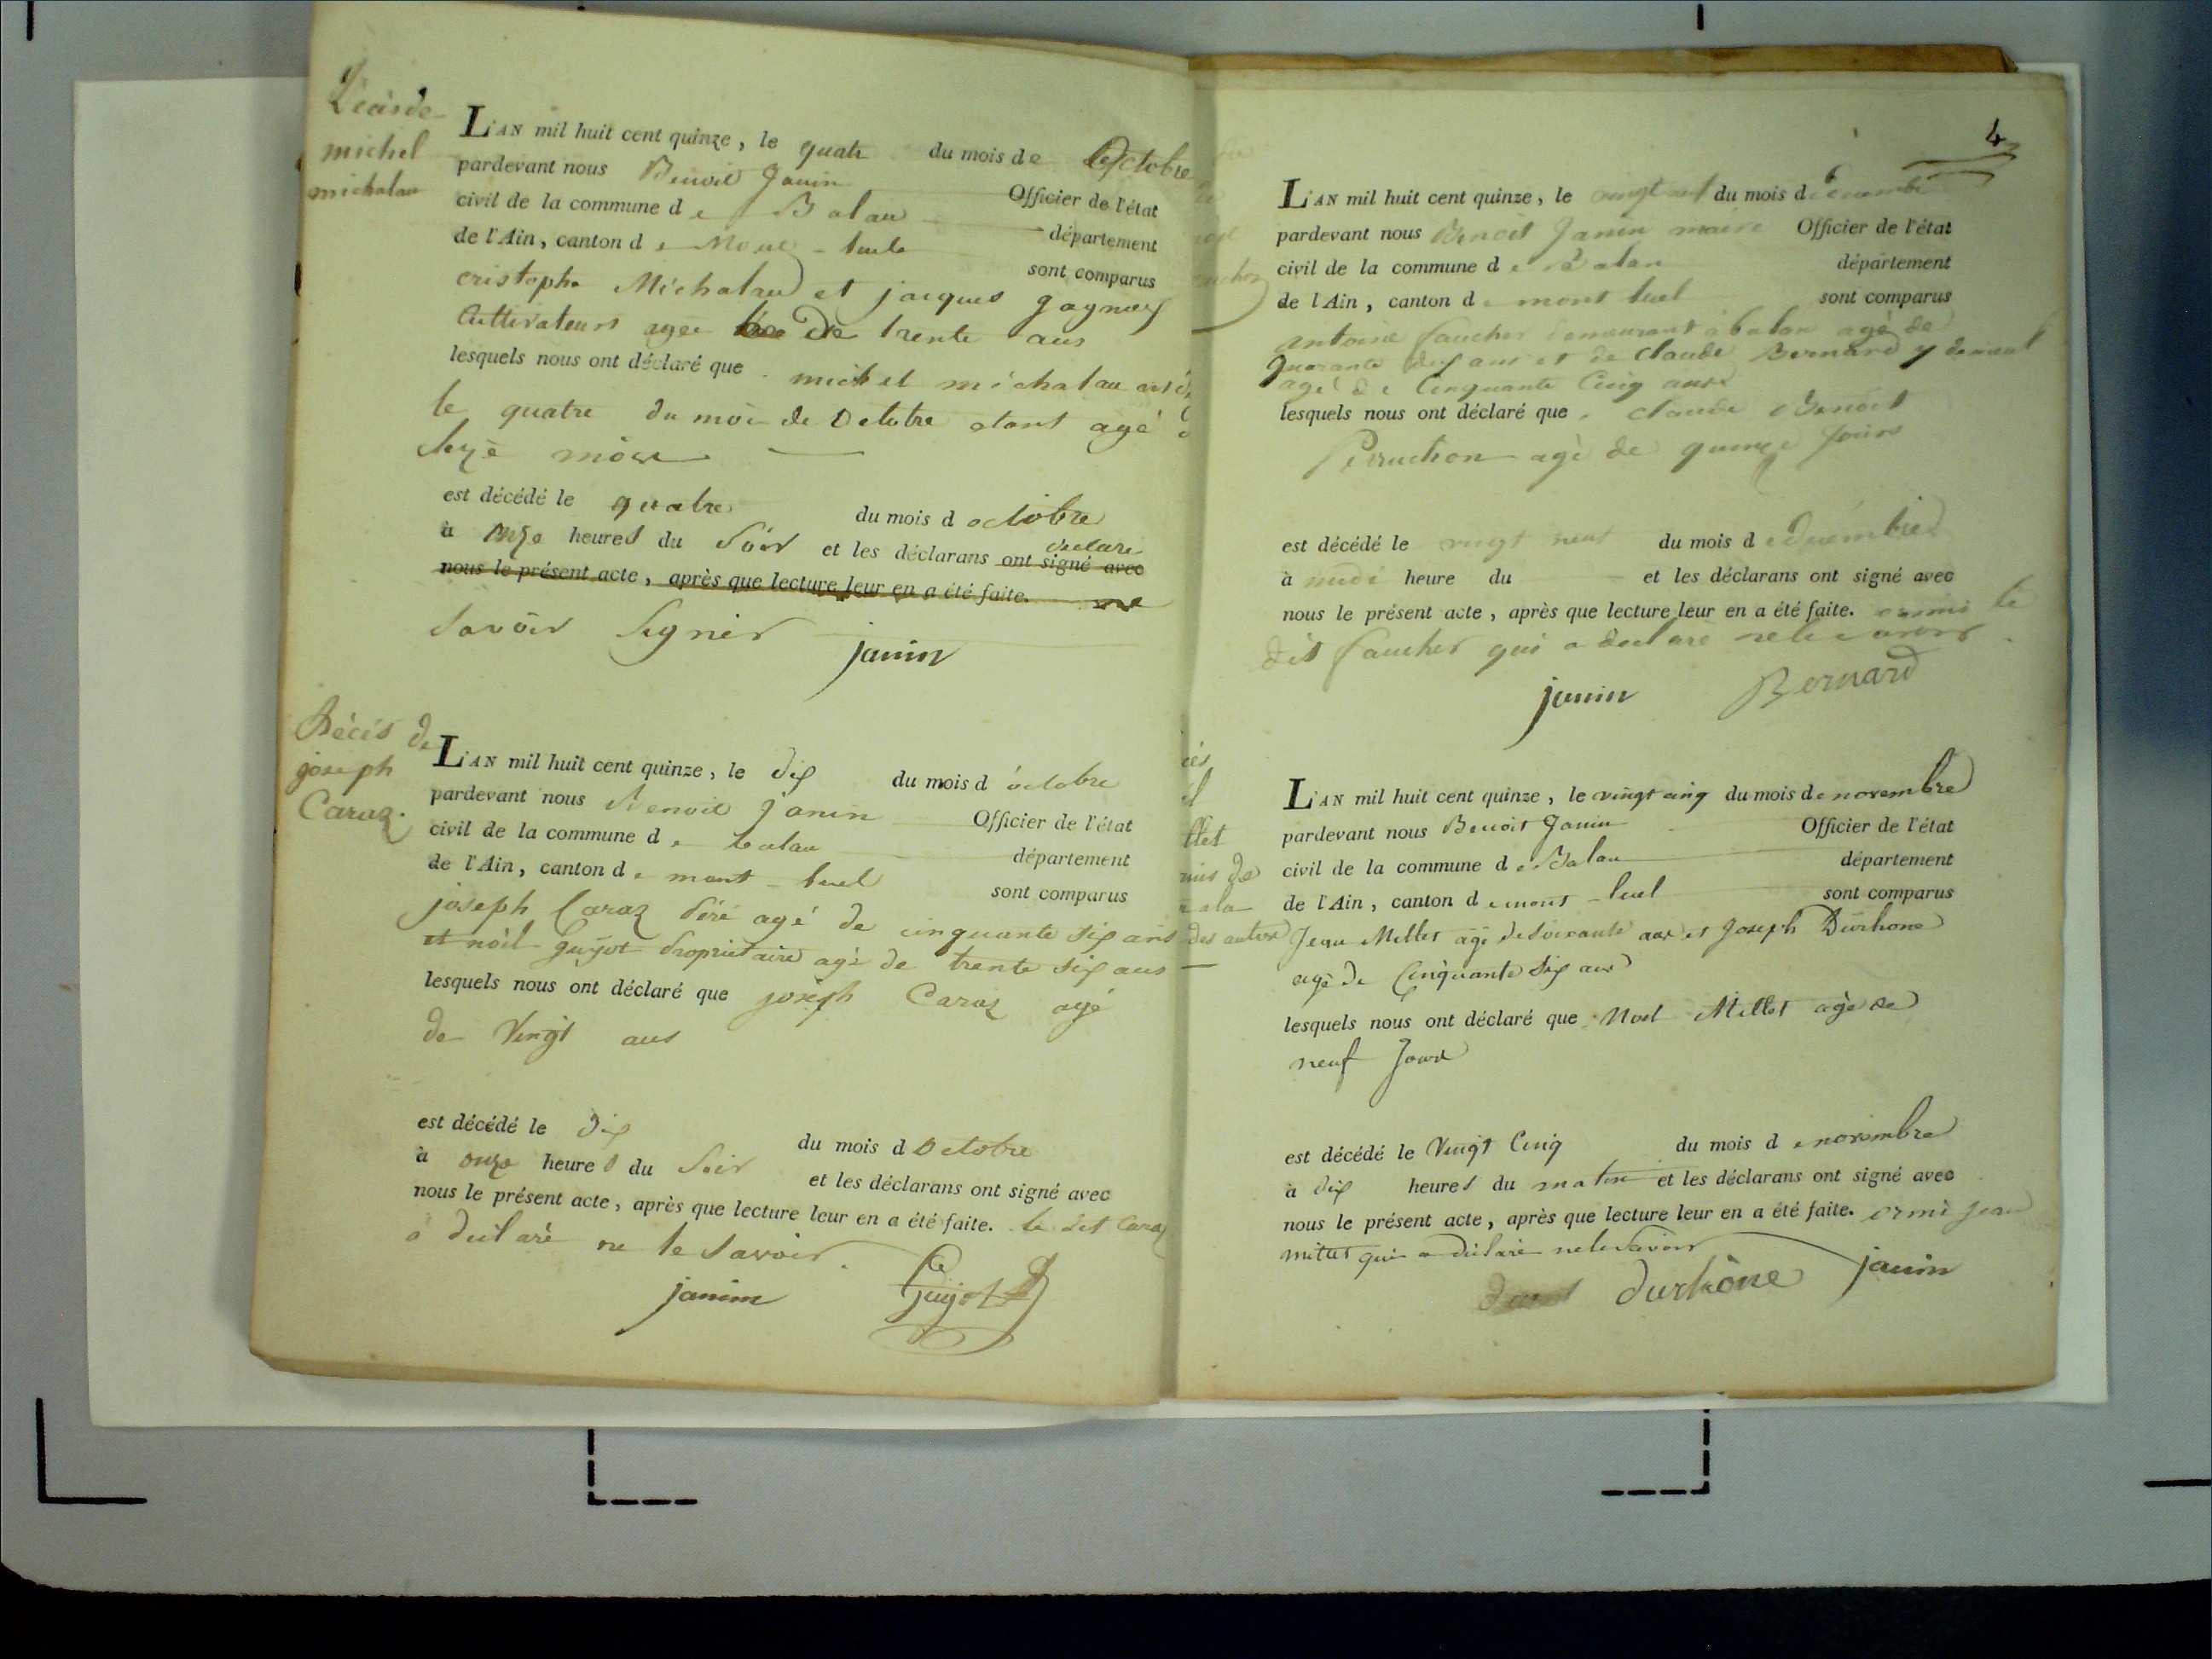 Décès de
michel
michalau
L'AN mil huit cent quinze, le quatr du mois de Octobre
pardevant nous Benoit Janin Officier de l'état
civil de la commune de Balan département
de l'Ain, canton de Mont-luel sont comparus
cristophe Michalau et jacques gagneux
Cultivateurs agee de trente ans
lesquels nous ont déclaré que michel michalau
le quatre du moi de Octobre etant agé
seize mois
est décédé le quatre du mois d octobre
à onze heures du Soir et les déclarans ont signé avec
declaré
nous le présent acte, après que lecture leur en a été faite. ne
Savoir Signer
janin
Décès de
joseph
Caraz.
L'AN mil huit cent quinze, le dix du mois d octobre
pardevant nous Benoit Janin Officier de l'état
civil de la commune de balan département
de l'Ain, canton de mont-luel sont comparus
joseph Caraz Péré agé de cinquante six ans
et noël Guyot Proprietaire agé de trente six ans
lesquels nous ont déclaré que joseph Caraz agé
de Vingt ans
est décédé le dix du mois d Octobre
à onze heures du Soir et les déclarans ont signé avec
nous le présent acte, après que lecture leur en a été faite. le dit Caraz
a déclaré ne le Savoir.
janin Guyot
4
L'AN mil huit cent quinze, le vingt neuf du mois de decembre
pardevant nous Benoit Janin maire Officier de l'état
civil de la commune de Balan département
de l'Ain, canton de mont luel sont comparus
antoine faucher demeurant a balan agé de
quarante dix ans et de claude Bernard y demeul
agé de Cinquante Cinq ans
lesquels nous ont déclaré que claude Benoit
Perruchon agé de quinze Jours
est décédé le vingt neuf du mois de Decembre
à midi heure du et les déclarans ont signé avec
nous le présent acte, après que lecture leur en a été faite. ormis le
dit faucher qui a declaré ne le savoir.
janin Bernard
L'AN mil huit cent quinze, le vingt cinq du mois de novembre
pardevant nous Benoit Janin Officier de l'état
civil de la commune de Balan département
de l'Ain, canton de mont-luel sont comparus
Jean Millet agé de Soixante ans et Joseph Durhone
agé de Cinquante Six ans
lesquels nous ont déclaré que Noel Millet agé de
neuf Jours
est décédé le Vingt Cinq du mois de novembre
à dix heures du matin et les déclarans ont signé avec
nous le présent acte, après que lecture leur en a été faite. ormi jean
millet qui a déclaré ne le Savoir
durhône janin